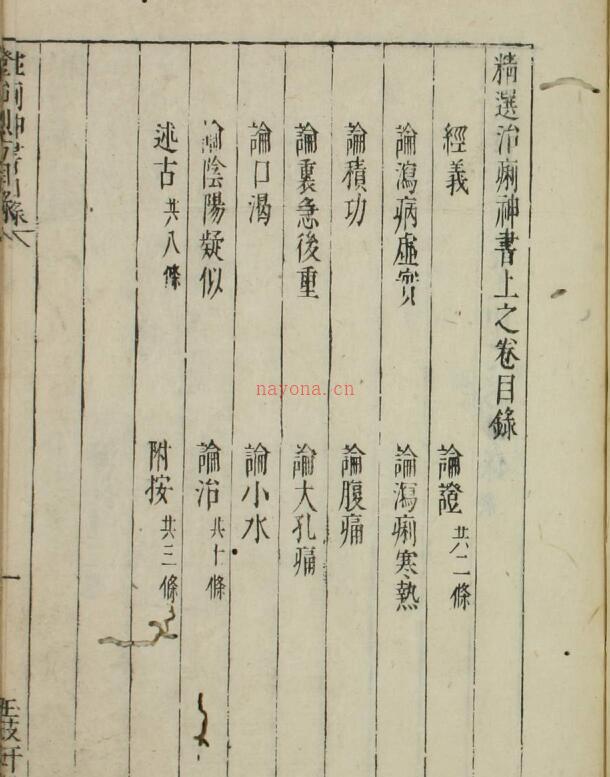 精選治痢神書上之卷目錄
經義
論證 共二條
論瀉病虛實
論瀉痢寒熱
論積功
論腹痛
論裏急後重
論大孔痛
論口渴
論小水
論陰陽疑似
論治 共十條
述古 共八條
附按 共三條
一
nayona.cn